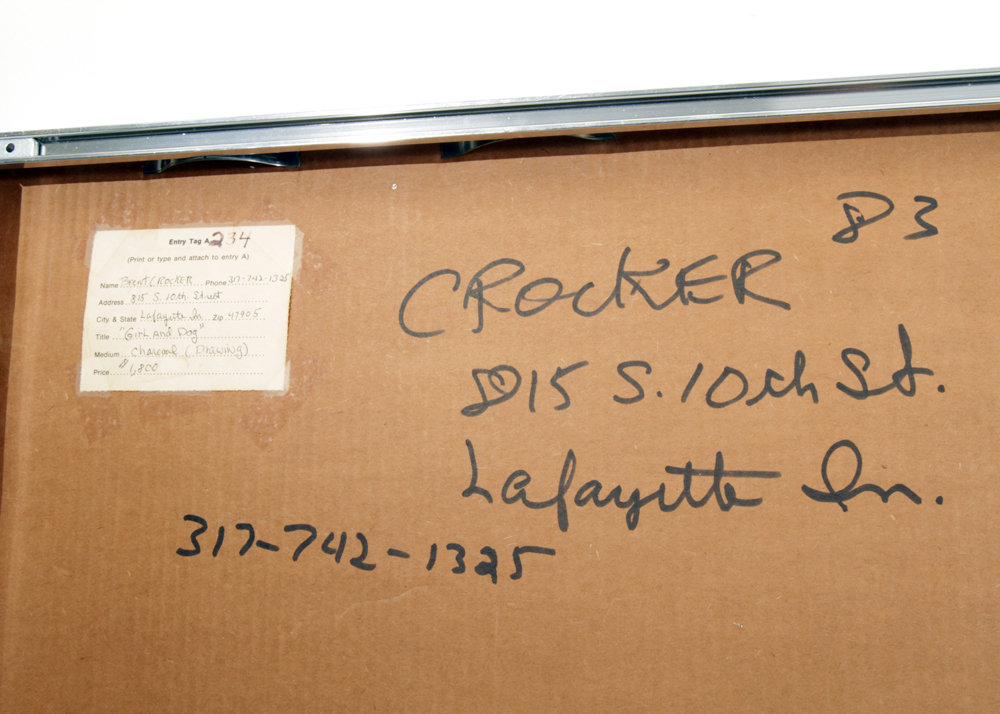 Entry Tag A 234
(Print or type and attach to entry A)
Name Brent CROCKER Phone 317-742-1325
Address 815 S. 10th Street
City & State Lafayette In Zip 47905
Title "Girl And Dog"
Medium Charcoal (Drawing)
Price $1,800
83
CROCKER
815 S. 10th St.
Lafayette In.
317-742-1325